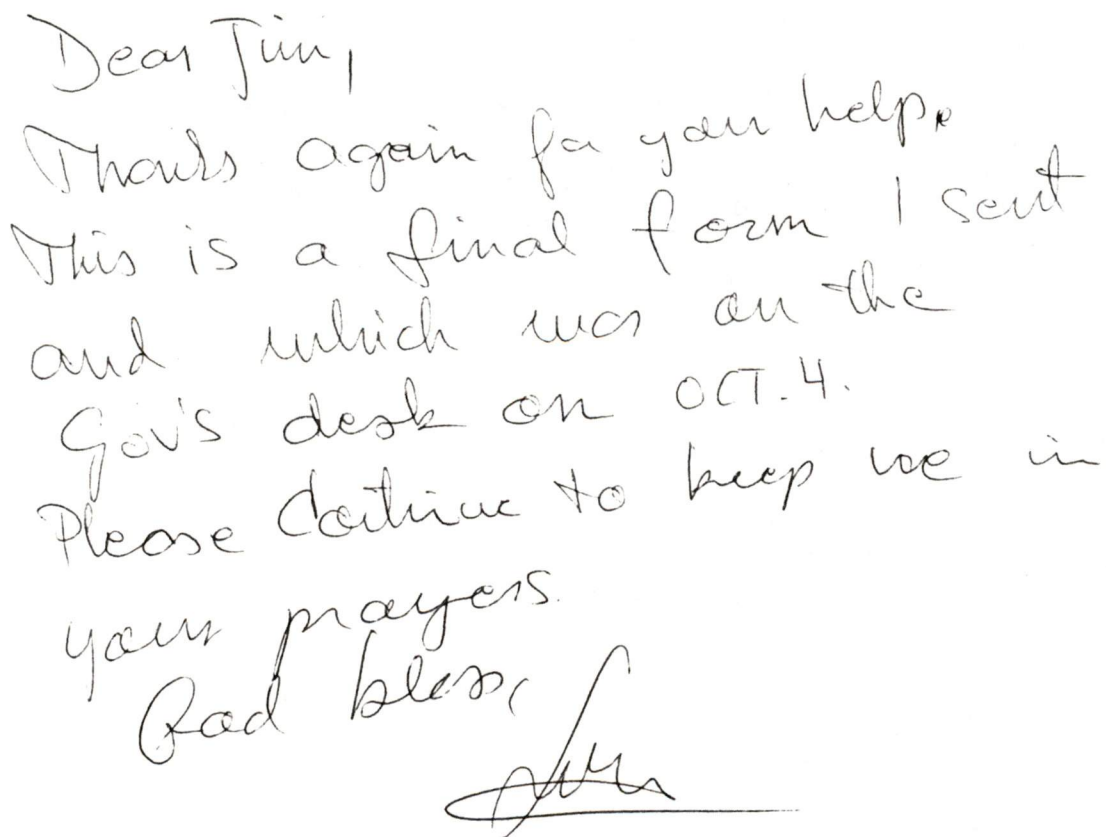 Dear Jim,
Thanks again for your help.
This is a final form I sent
and which was on the
Gov's desk on OCT. 4.
Please continue to keep me in
your prayers.
God bless,